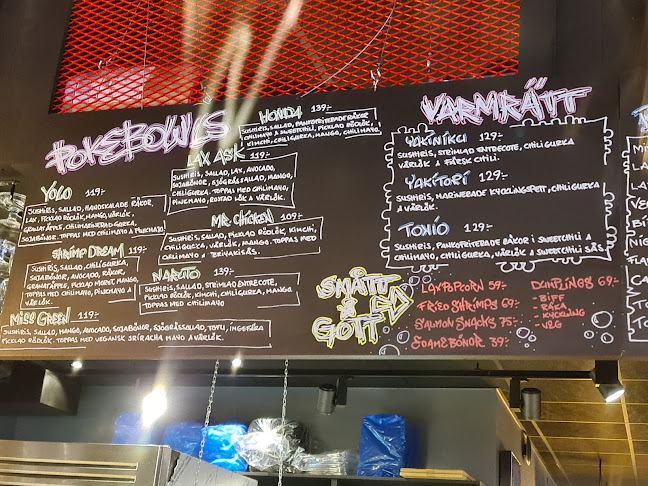 POKEBOWLS
YOLO 119:-
SUSHIRIS, SALLAD, HANDSKALADE RÄKOR,
LAX, PICKLAD RÖDLÖK, MANGO, VÅRLÖK,
GRANATÄPPLE, CHILIMARINERAD GURKA,
SOJABÖNOR. TOPPAS MED CHILIMAYO & PINKMAYO.
SHRIMP DREAM 119:-
SUSHIRIS, SALLAD, CHILIGURKA,
SOJABÖNOR, AVOCADO, RÄKOR,
GRANATÄPPLE, PICKLAD MOROT, MANGO,
TOPPAS MED CHILIMAYO, PINKMAYO &
VÅRLÖK.
MISS GREEN 119:-
SUSHIRIS, SALLAD, MANGO, AVOCADO, SOJABÖNOR, SJÖGRÄSSALLAD, TOFU, INGEFÄRA
PICKLAD RÖDLÖK. TOPPAS MED VEGANSK SRIRACHA MAYO & VÅRLÖK.
LAX ASK 119:-
SUSHIRIS, SALLAD, LAX, AVOCADO,
SOJABÖNOR, SJÖGRÄSSALLAD, MANGO,
CHILIGURKA. TOPPAS MED CHILIMAYO,
PINKMAYO, ROSTAD LÖK & VÅRLÖK.
MR. CHICKEN 109:-
SUSHIRIS, SALLAD, PICKLAD RÖDLÖK, KIMCHI,
CHILIGURKA, VÅRLÖK, MANGO. TOPPAS MED
CHILIMAYO & TERIYAKISÅS.
NARUTO 139:-
SUSHIRIS, SALLAD, STRIMLAD ENTRECOTE,
PICKLAD RÖDLÖK, KIMCHI, CHILIGURKA, MANGO
TOPPAS MED CHILIMAYO
HONDA 139:-
SUSHIRIS, SALLAD, PANKOFRITERADE RÄKOR
I CHILIMAYO & SWEETCHILI, PICKLAD RÖDLÖK,
KIMCHI, CHILIGURKA, MANGO, CHILIMAYO.
VARMRÄTT
YAKINIKU 129:-
SUSHIRIS, STRIMLAD ENTRECOTE, CHILIGURKA
VÅRLÖK & FÄRSK CHILI.
YAKITORI 129:-
SUSHIRIS, MARINERADE KYCKLINGSPETT, CHILIGURKA
& VÅRLÖK.
TOKIO 129:-
SUSHIRIS, PANKOFRITERADE RÄKOR I SWEETCHILI &
CHILIMAYO, CHILIGURKA, VÅRLÖK & SWEETCHILI SÅS.
SMÅTT
& GOTT
LAXPOPCORN 59:-
FRIED SHRIMPS 69:-
SALMON SNACKS 75:-
SOJABÖNOR 39:-
DUMPLINGS 69:-
- BIFF
- RÄKA
- KYCKLING
- VEG